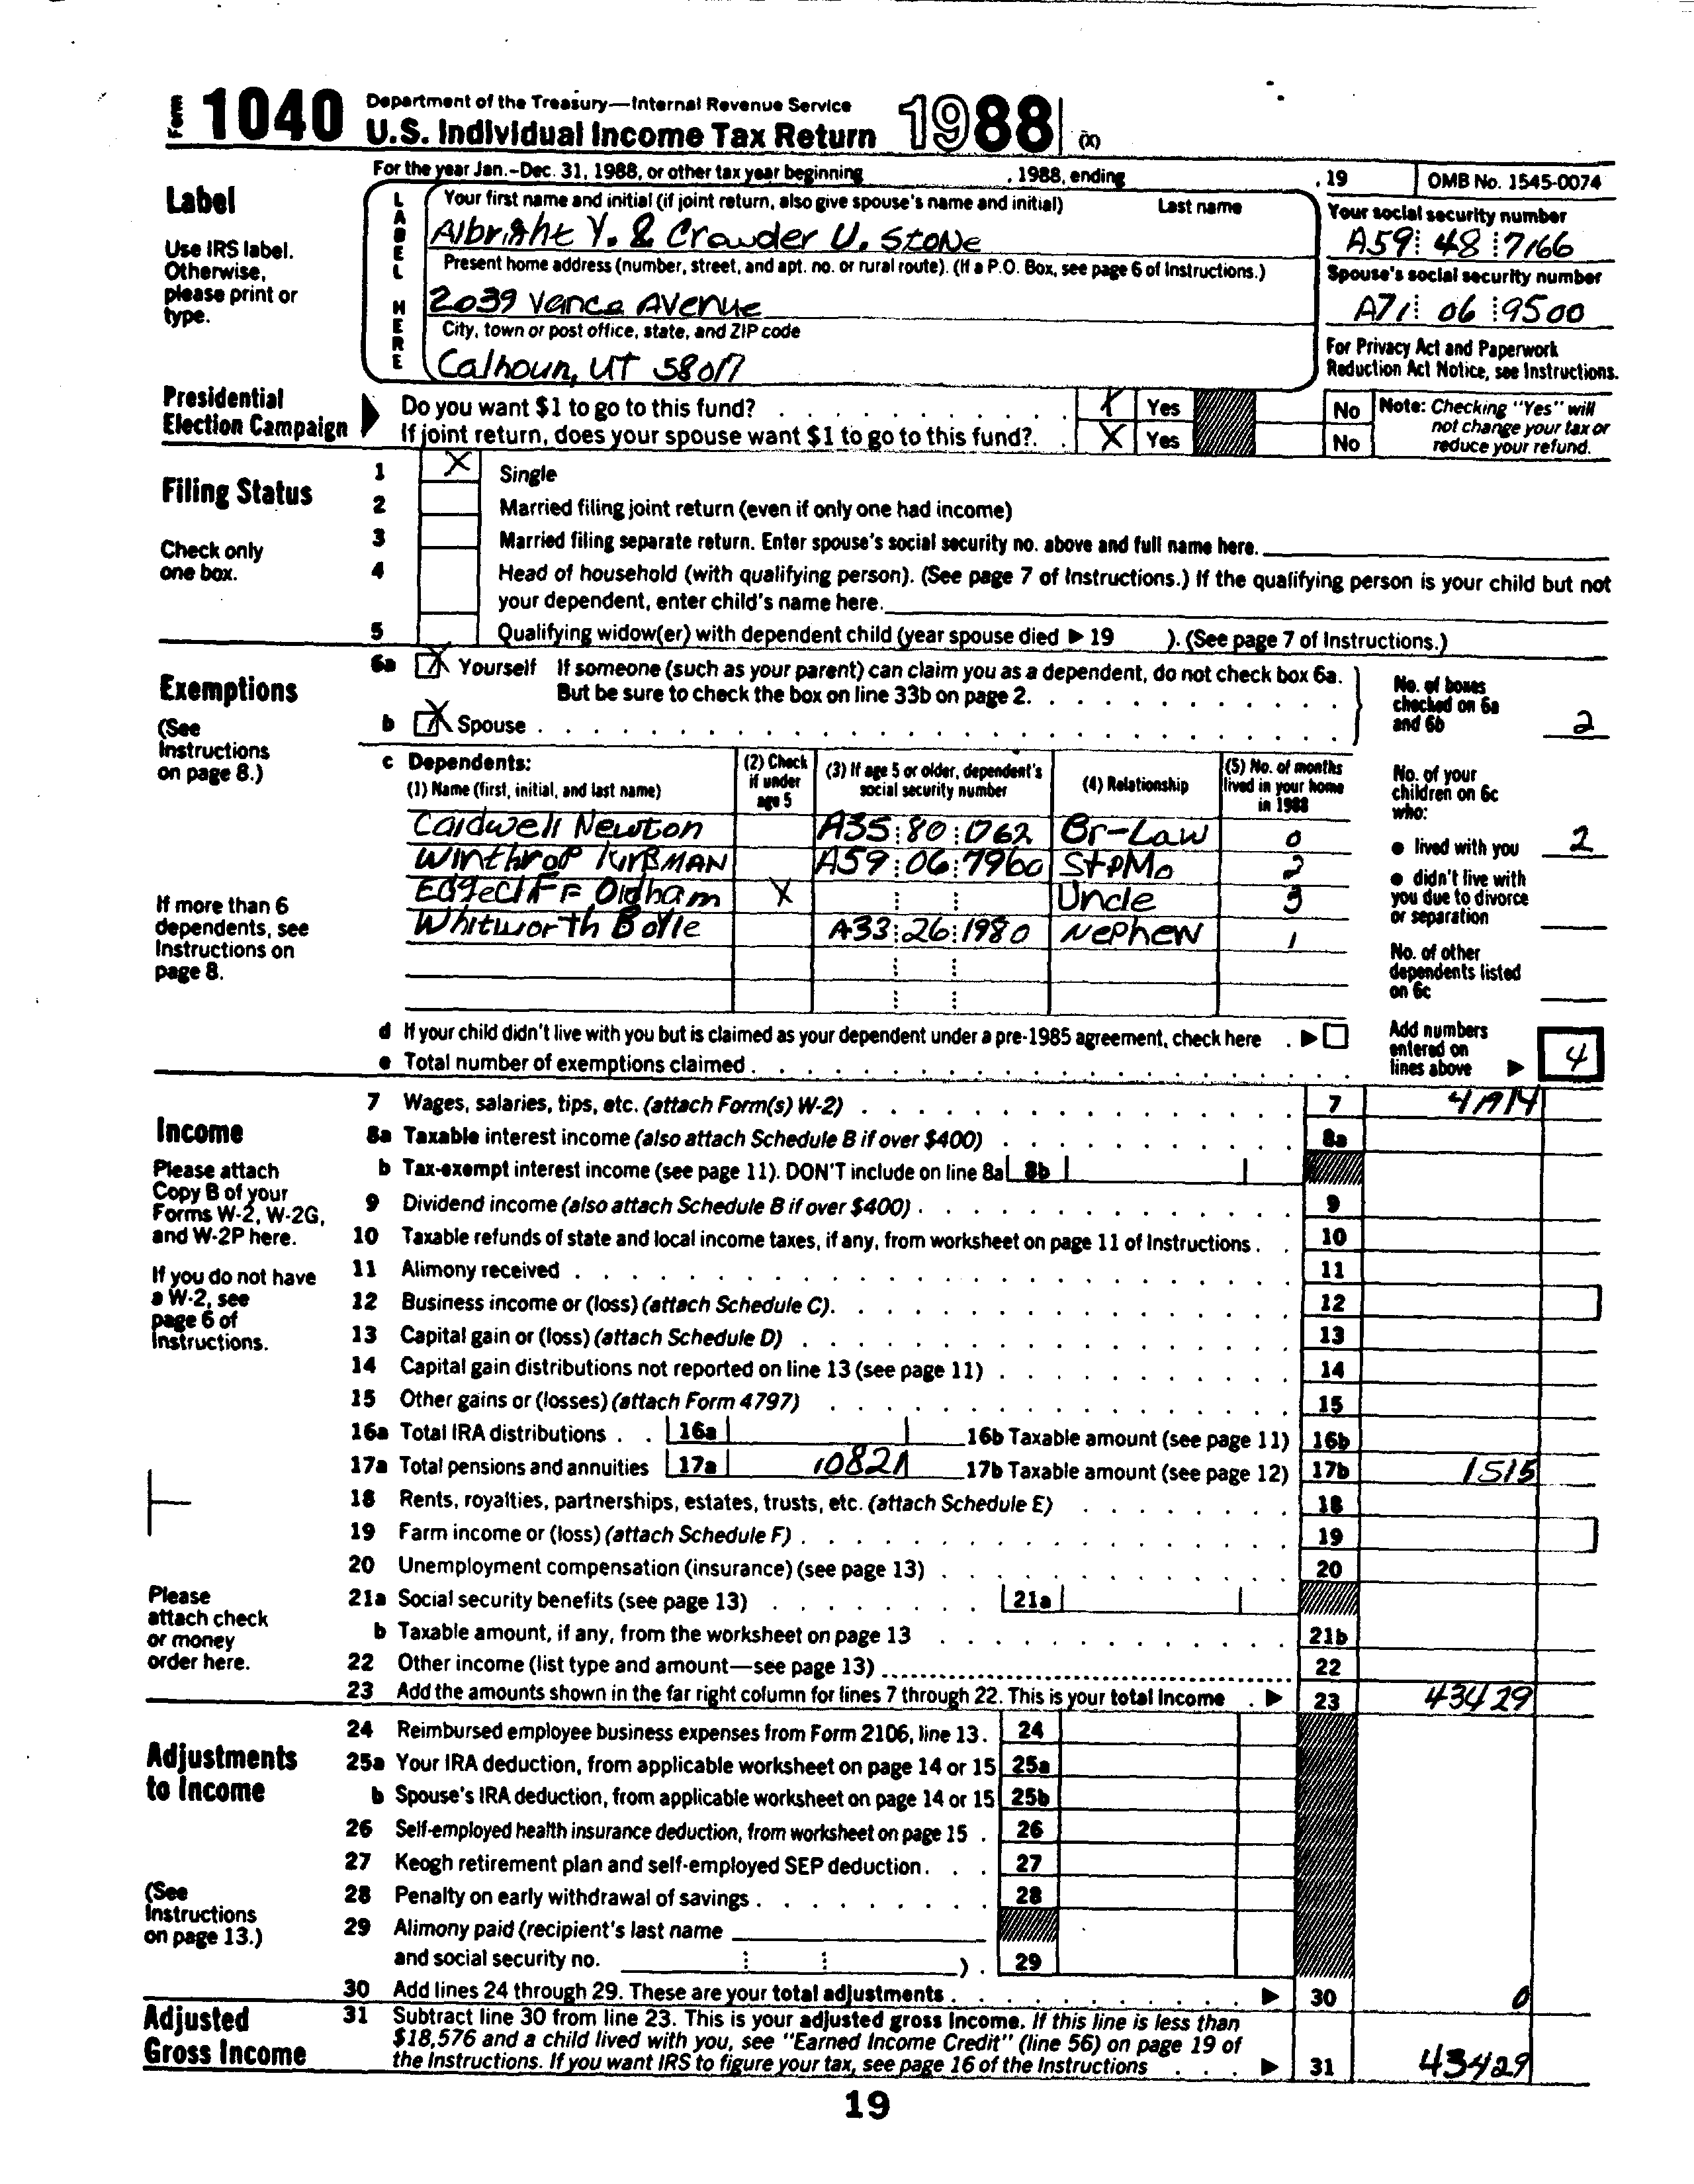 Form 1040 Department of the Treasury—Internal Revenue Service
U.S. Individual Income Tax Return 1988 (X)
For the year Jan.-Dec. 31, 1988, or other tax year beginning , 1988, ending , 19 OMB No. 1545-0074
Label
Use IRS label.
Otherwise,
please print or
type.
LABEL HERE
Your first name and initial (if joint return, also give spouse's name and initial) Last name
Albright Y. & Crowder U. Stone
Your social security number
A59 48 7166
Present home address (number, street, and apt. no. or rural route). (If a P.O. Box, see page 6 of Instructions.)
2039 Vance Avenue
Spouse's social security number
A71 06 9500
City, town or post office, state, and ZIP code
Calhoun, UT 58017
For Privacy Act and Paperwork
Reduction Act Notice, see Instructions.
Presidential
Election Campaign
Do you want $1 to go to this fund? X Yes No
If joint return, does your spouse want $1 to go to this fund? X Yes No
Note: Checking "Yes" will
not change your tax or
reduce your refund.
Filing Status
Check only
one box.
1 X Single
2 Married filing joint return (even if only one had income)
3 Married filing separate return. Enter spouse's social security no. above and full name here.
4 Head of household (with qualifying person). (See page 7 of Instructions.) If the qualifying person is your child but not
your dependent, enter child's name here.
5 Qualifying widow(er) with dependent child (year spouse died ▶ 19 ). (See page 7 of Instructions.)
Exemptions
(See
Instructions
on page 8.)
6a X Yourself If someone (such as your parent) can claim you as a dependent, do not check box 6a.
But be sure to check the box on line 33b on page 2.
b X Spouse
No. of boxes
checked on 6a
and 6b 2
c Dependents:
(1) Name (first, initial, and last name)
(2) Check
if under
age 5
(3) If age 5 or older, dependent's
social security number
(4) Relationship
(5) No. of months
lived in your home
in 1988
Caldwell Newton A35 80 1762 Br-Law 0
Winthrop Kirkman A59 06 7960 StpMo 2
Edgecliff Oldham X Uncle 3
Whitworth Boyle A33 26 1980 Nephew 1
If more than 6
dependents, see
Instructions on
page 8.
No. of your
children on 6c
who:
● lived with you 2
● didn't live with
you due to divorce
or separation
No. of other
dependents listed
on 6c
d If your child didn't live with you but is claimed as your dependent under a pre-1985 agreement, check here ▶
e Total number of exemptions claimed
Add numbers
entered on
lines above ▶ 4
Income
Please attach
Copy B of your
Forms W-2, W-2G,
and W-2P here.
If you do not have
a W-2, see
page 6 of
Instructions.
Please
attach check
or money
order here.
7 Wages, salaries, tips, etc. (attach Form(s) W-2) 7 41914
8a Taxable interest income (also attach Schedule B if over $400) 8a
b Tax-exempt interest income (see page 11). DON'T include on line 8a 8b
9 Dividend income (also attach Schedule B if over $400) 9
10 Taxable refunds of state and local income taxes, if any, from worksheet on page 11 of Instructions 10
11 Alimony received 11
12 Business income or (loss) (attach Schedule C) 12
13 Capital gain or (loss) (attach Schedule D) 13
14 Capital gain distributions not reported on line 13 (see page 11) 14
15 Other gains or (losses) (attach Form 4797) 15
16a Total IRA distributions 16a 16b Taxable amount (see page 11) 16b
17a Total pensions and annuities 17a 10821 17b Taxable amount (see page 12) 17b 1515
18 Rents, royalties, partnerships, estates, trusts, etc. (attach Schedule E) 18
19 Farm income or (loss) (attach Schedule F) 19
20 Unemployment compensation (insurance) (see page 13) 20
21a Social security benefits (see page 13) 21a
b Taxable amount, if any, from the worksheet on page 13 21b
22 Other income (list type and amount—see page 13) 22
23 Add the amounts shown in the far right column for lines 7 through 22. This is your total income ▶ 23 43429
Adjustments
to Income
(See
Instructions
on page 13.)
24 Reimbursed employee business expenses from Form 2106, line 13. 24
25a Your IRA deduction, from applicable worksheet on page 14 or 15 25a
b Spouse's IRA deduction, from applicable worksheet on page 14 or 15 25b
26 Self-employed health insurance deduction, from worksheet on page 15 26
27 Keogh retirement plan and self-employed SEP deduction 27
28 Penalty on early withdrawal of savings 28
29 Alimony paid (recipient's last name
and social security no. ) 29
30 Add lines 24 through 29. These are your total adjustments ▶ 30 0
Adjusted
Gross Income
31 Subtract line 30 from line 23. This is your adjusted gross income. If this line is less than
$18,576 and a child lived with you, see "Earned Income Credit" (line 56) on page 19 of
the Instructions. If you want IRS to figure your tax, see page 16 of the Instructions ▶ 31 43429
19